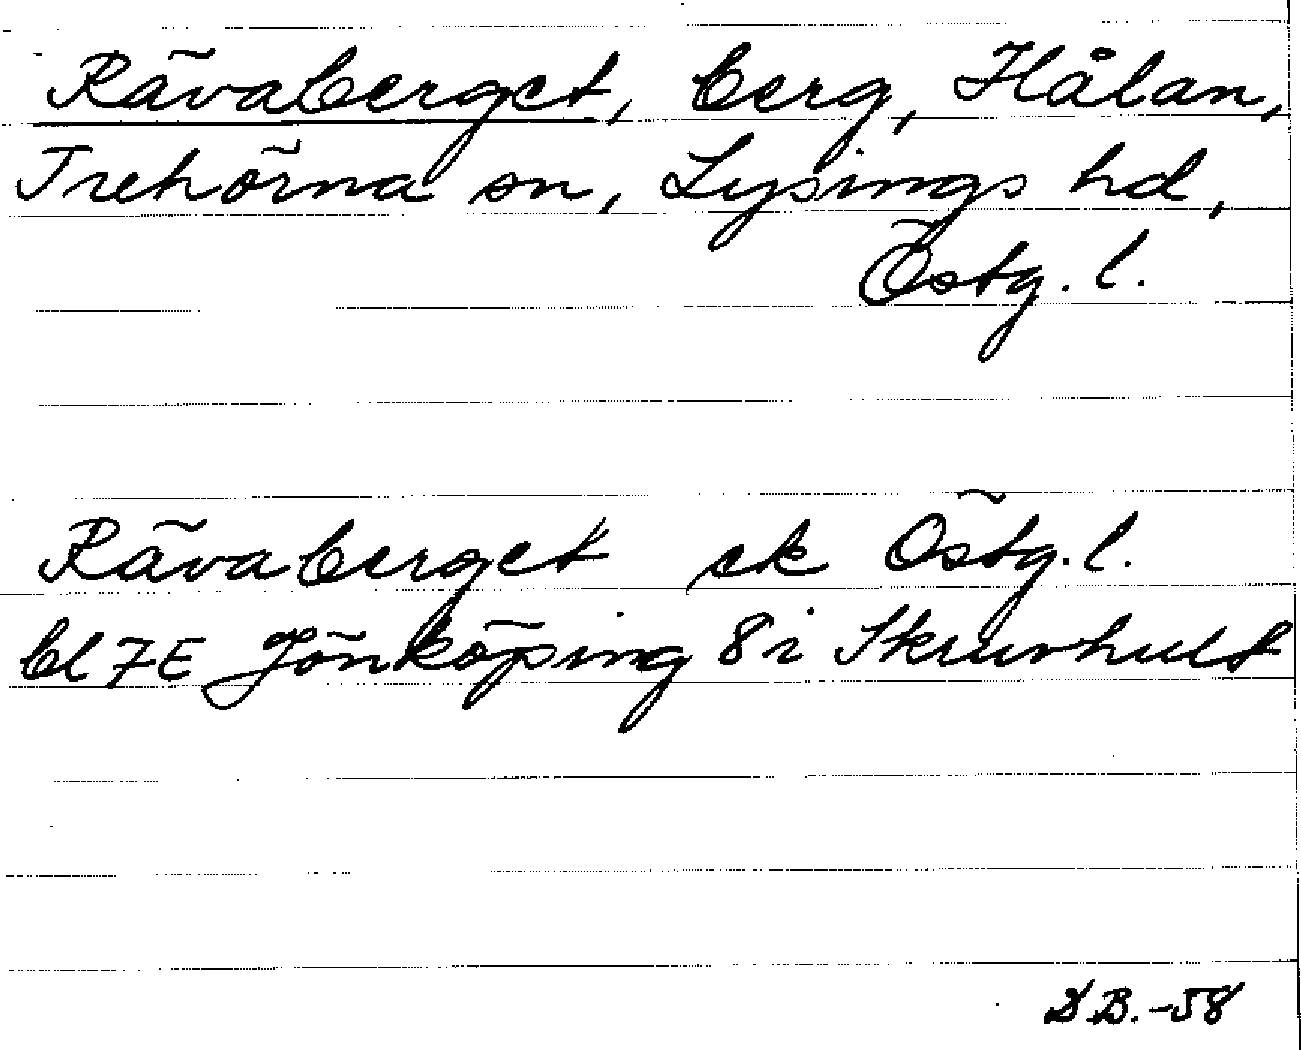 Rävaberget, berg, Hålan,
Trehörna sn, Lysings hd,
Östg. l.
Rävaberget ek Östg. l.
bl 7E Jönköping 8 i Skruvhult
D.B. -58